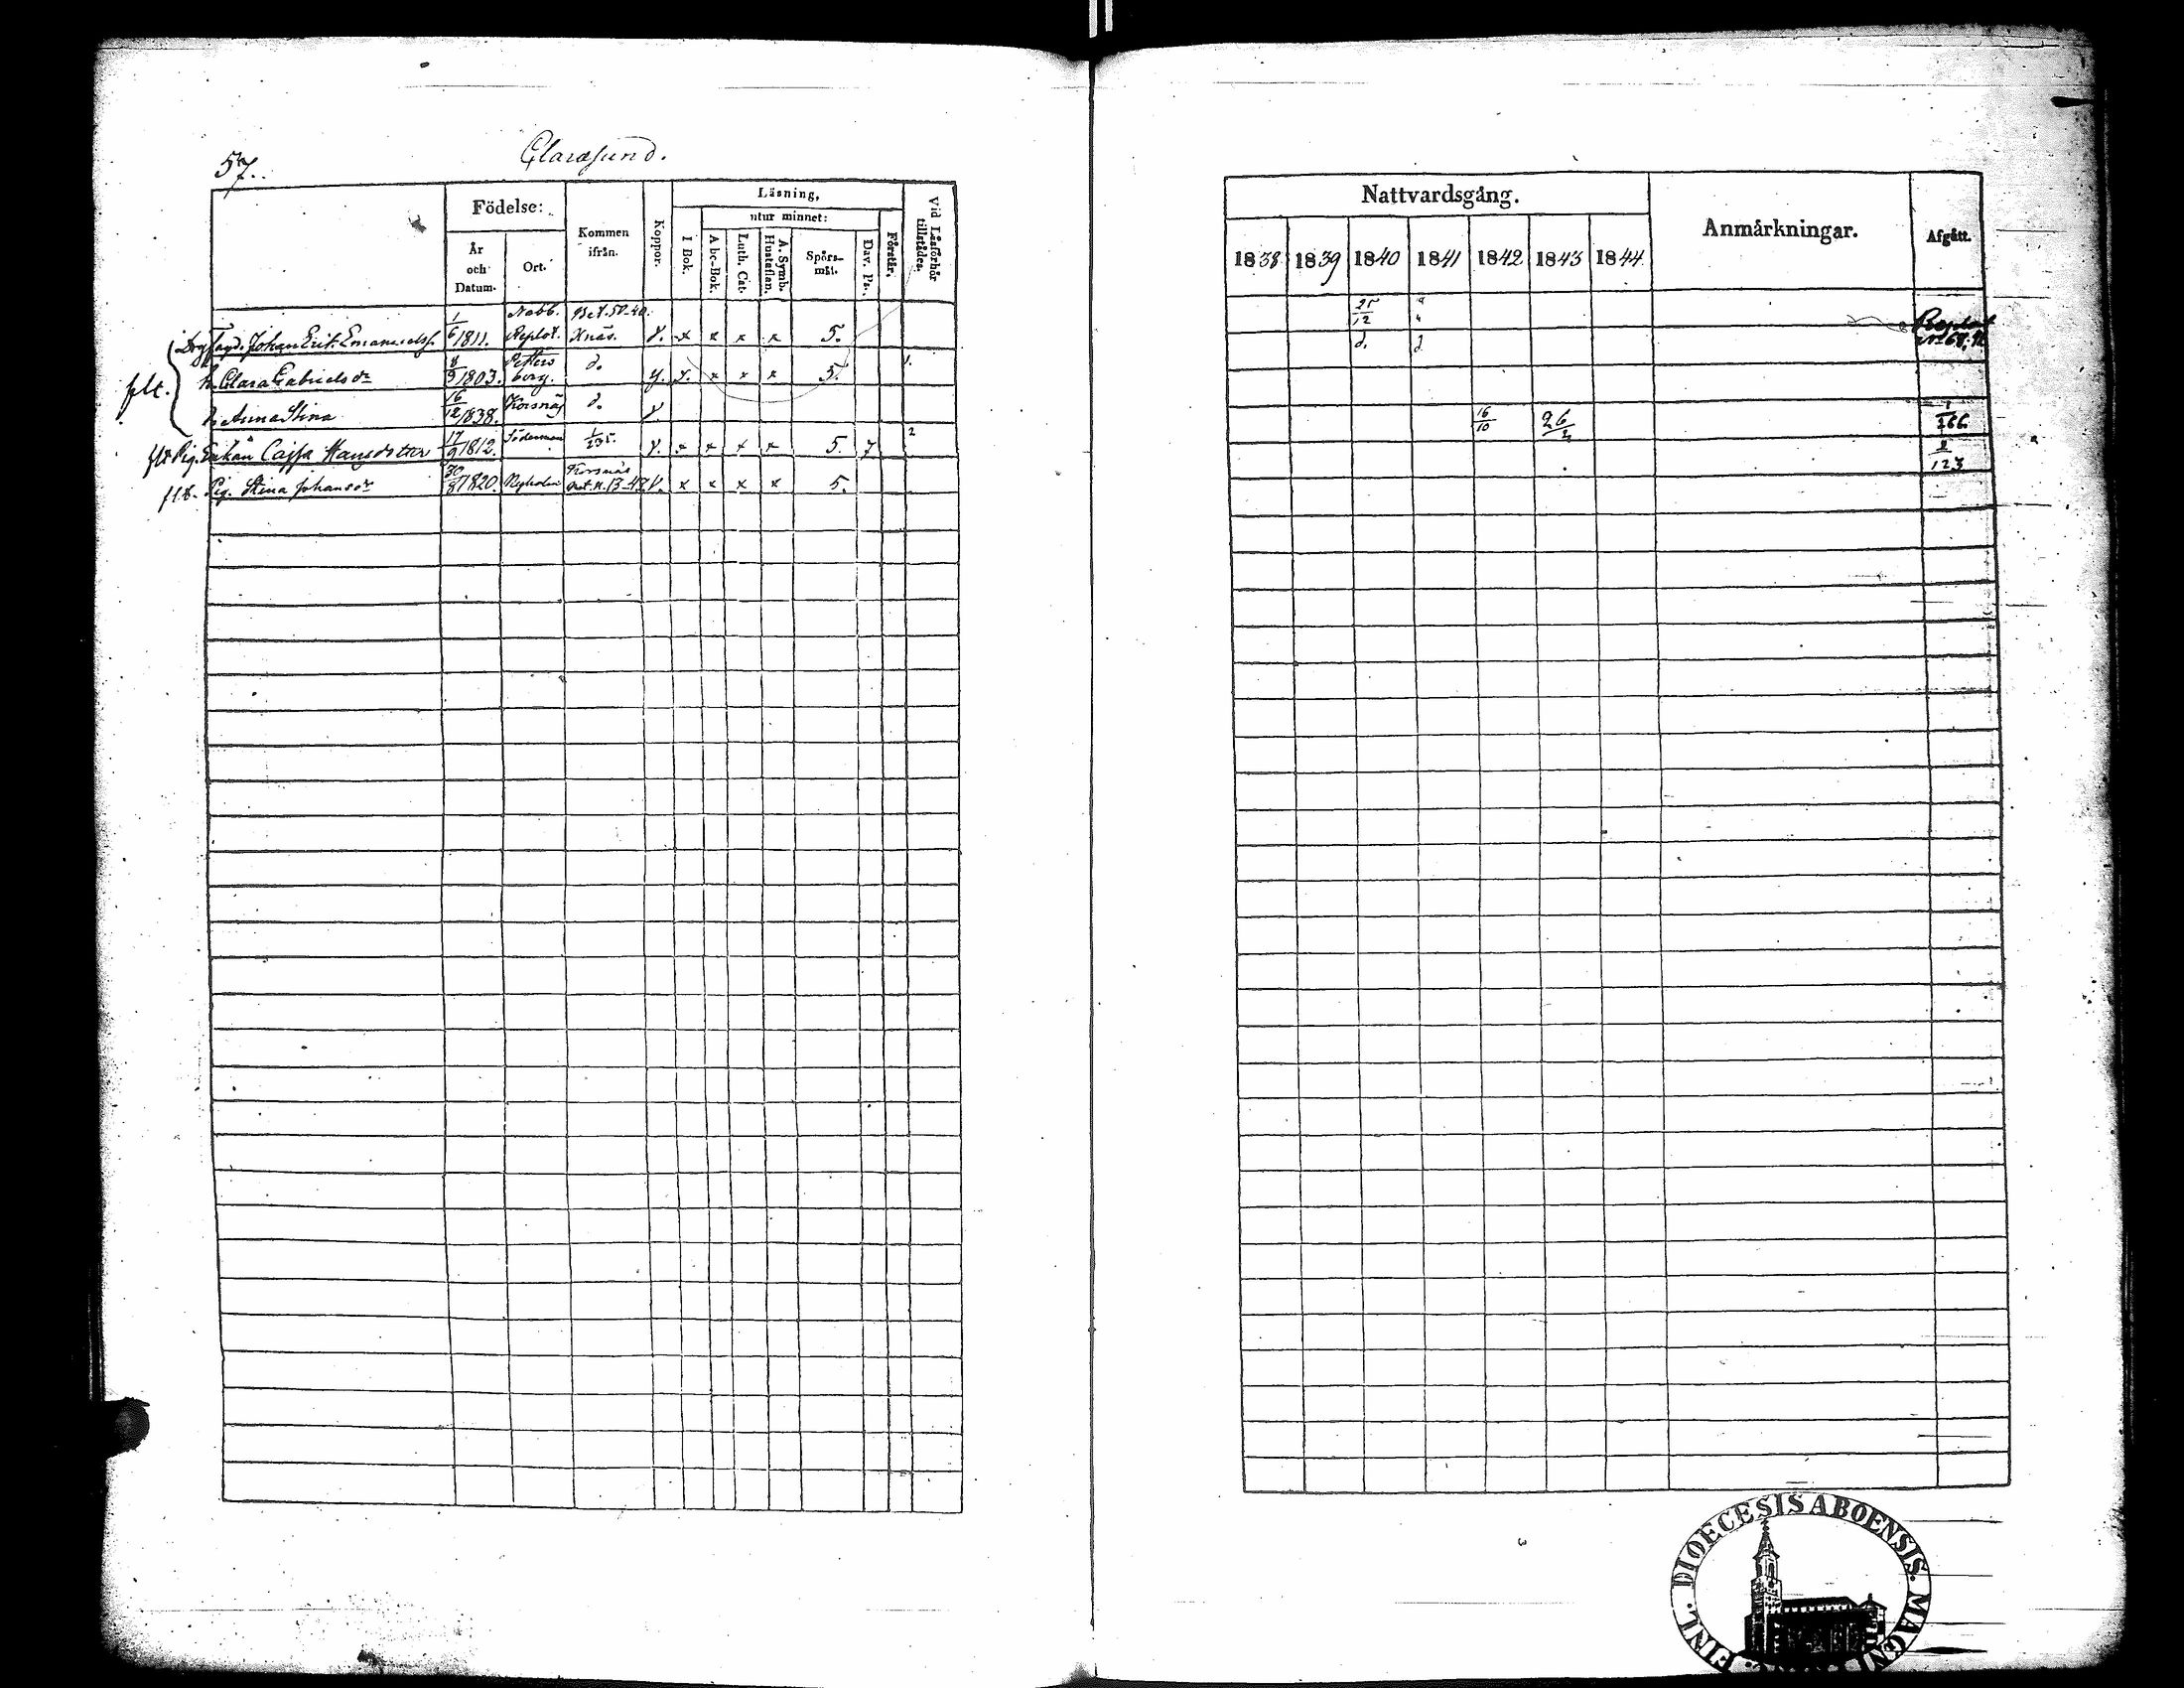 57.
Clarasund.
Födelse:
År och Datum.
Ort.
Kommen ifrån.
Koppor.
Läsning,
I Bok.
utur minnet:
Abc-Bok.
Luth. Cat.
A. Symb. Hustaflan.
Spörs-mål.
Dav. Ps.
Förstår.
Vid Läsförhör tillstädes.
Johan Erik Emanuelss. 1/6 1811. Nabb. Replot. Bet. 50-40. Xnäs. v. x x x x 5.
flt. h. Clara Gabrielsdr 8/9 1803. Petters borg. d. v. x x x 5. 1.
d. Anna Stina 16/12 1838. Korsnäs d. v
flt Pig. Enkan Cajsa Hansdotter 17/9 1812. Söderman 1/235. v. x x x x 5. 7 2
flt. Pig. Stina Johansdr 30/8 1820. Nyholm Korsnäs 13-42 v. x x x x 5.
Nattvardsgång.
Anmärkningar.
Afgått.
1838 1839 1840 1841 1842 1843 1844
25/12 Replot
d. d
16/10 26/2 1/266
2/123
FINL. DIOECESIS ABOENSIS. MAGN